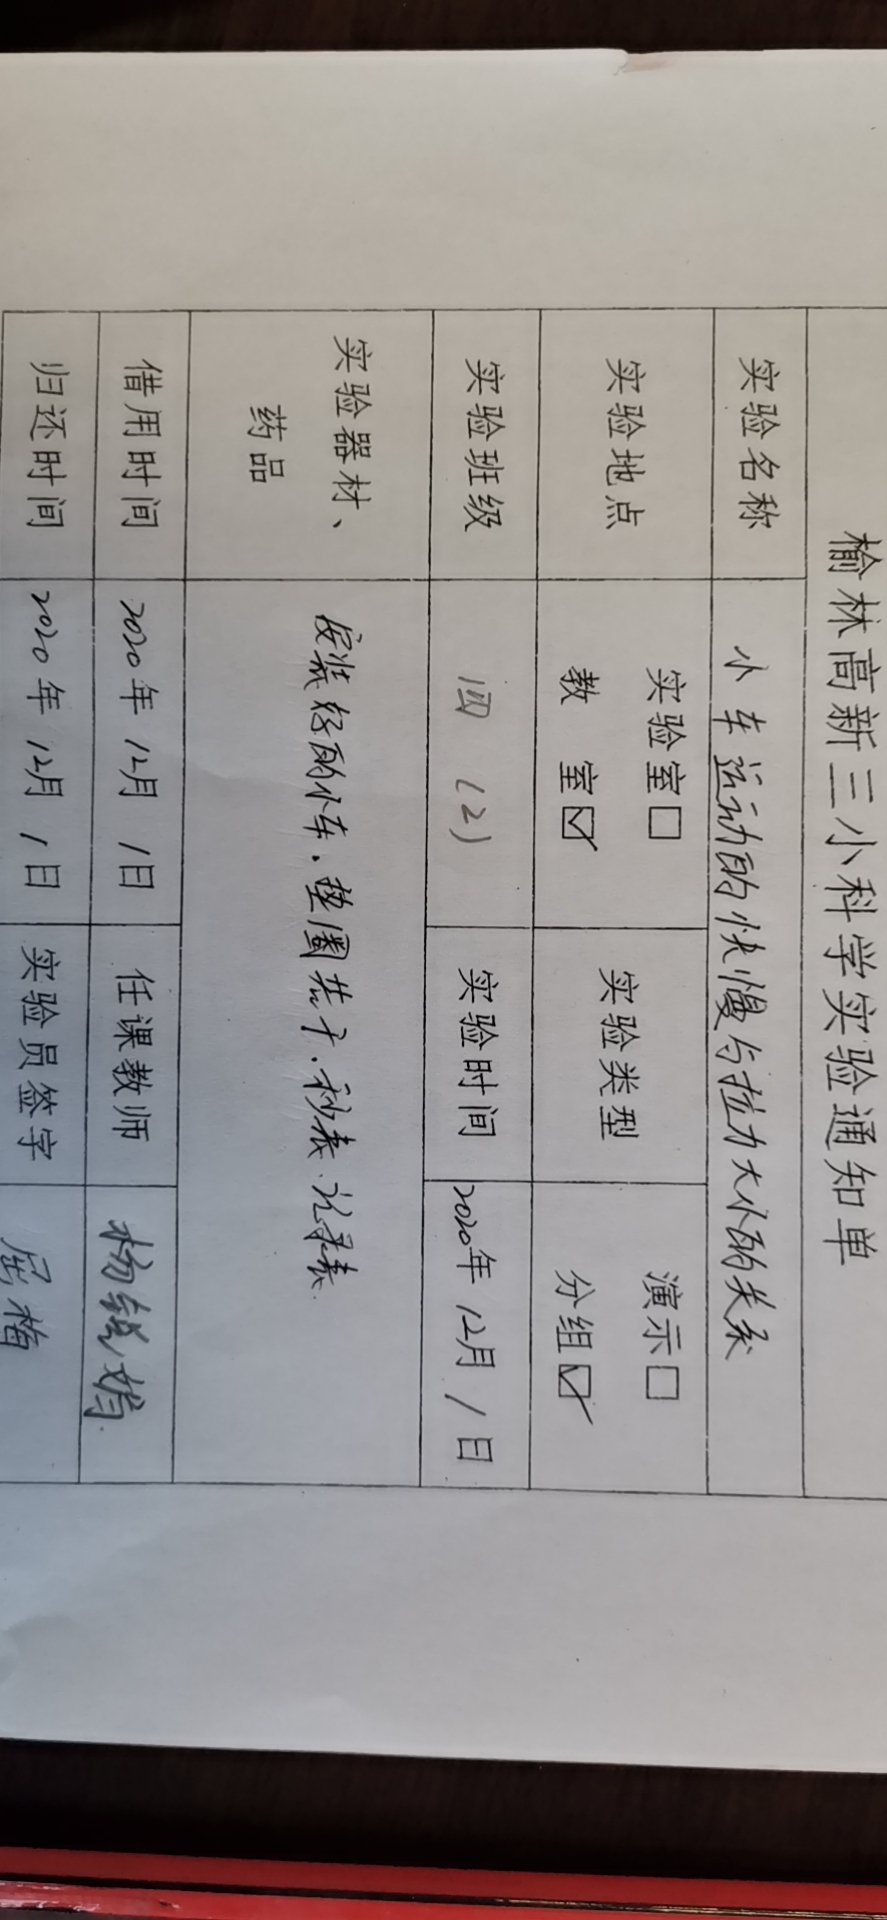 榆林高新三小科学实验通知单
实验名称 小车运动的快慢与拉力大小的关系
实验地点 实验室□ 教 室☑ 实验类型 演示□ 分组☑
实验班级 四(2) 实验时间 2020年12月1日
实验器材、药品 安装好的小车、垫圈若干、秒表、记录表.
借用时间 2020年12月1日 任课教师 杨
归还时间 2020年12月1日 实验员签字 屈梅